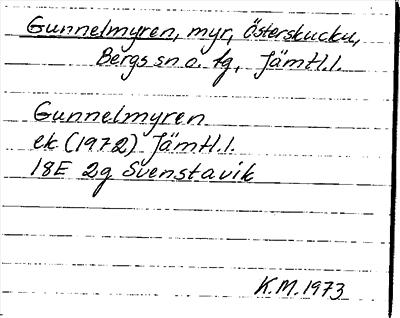 Gunnelmyren, myr, Österskucku,
Bergs sn o. tg, Jämtl.l.
Gunnelmyren
ek (1972) Jämtl.l.
18E 2g Svenstavik
K.M. 1973